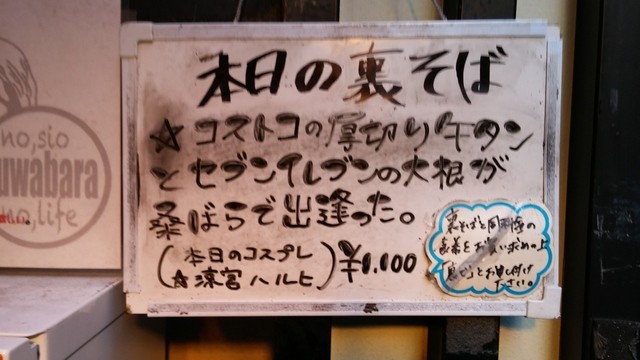 no,sio
uwabara
no,life
本日の裏そば
☆コストコの厚切り牛タン
とセブンイレブンの大根が
桑ばらで出逢った。
(本日のコスプレ
☆涼宮ハルヒ)
¥1.100
裏そばと同価格の
食券をお買い求めの上
とお申し付け
ださい。